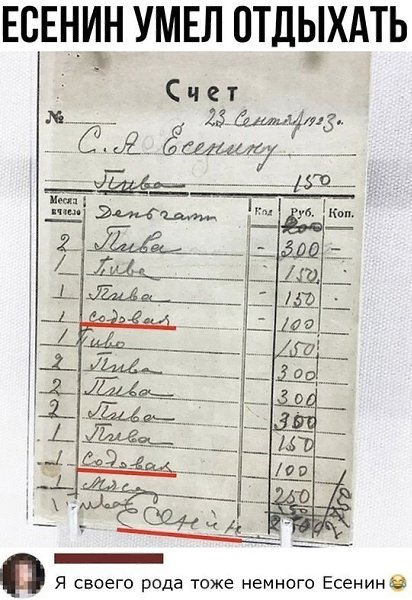 ЕСЕНИН УМЕЛ ОТДЫХАТЬ
Счет
№ 23 Сентября 1923 г.
С. А. Есенину
Пива 150
Месяц и число Кол Руб. Коп.
Деньгами 200
2 Пива - 300 -
1 Пива 150
1 Пива - 150
1 содовая - 100
1 Пиво 150
2 Пива 300
2 Пива 300
2 Пива 300
1 Пива 150
1 Содовая 100
1 Мясо 250
1 пиво 150
Есенин
Я своего рода тоже немного Есенин😂